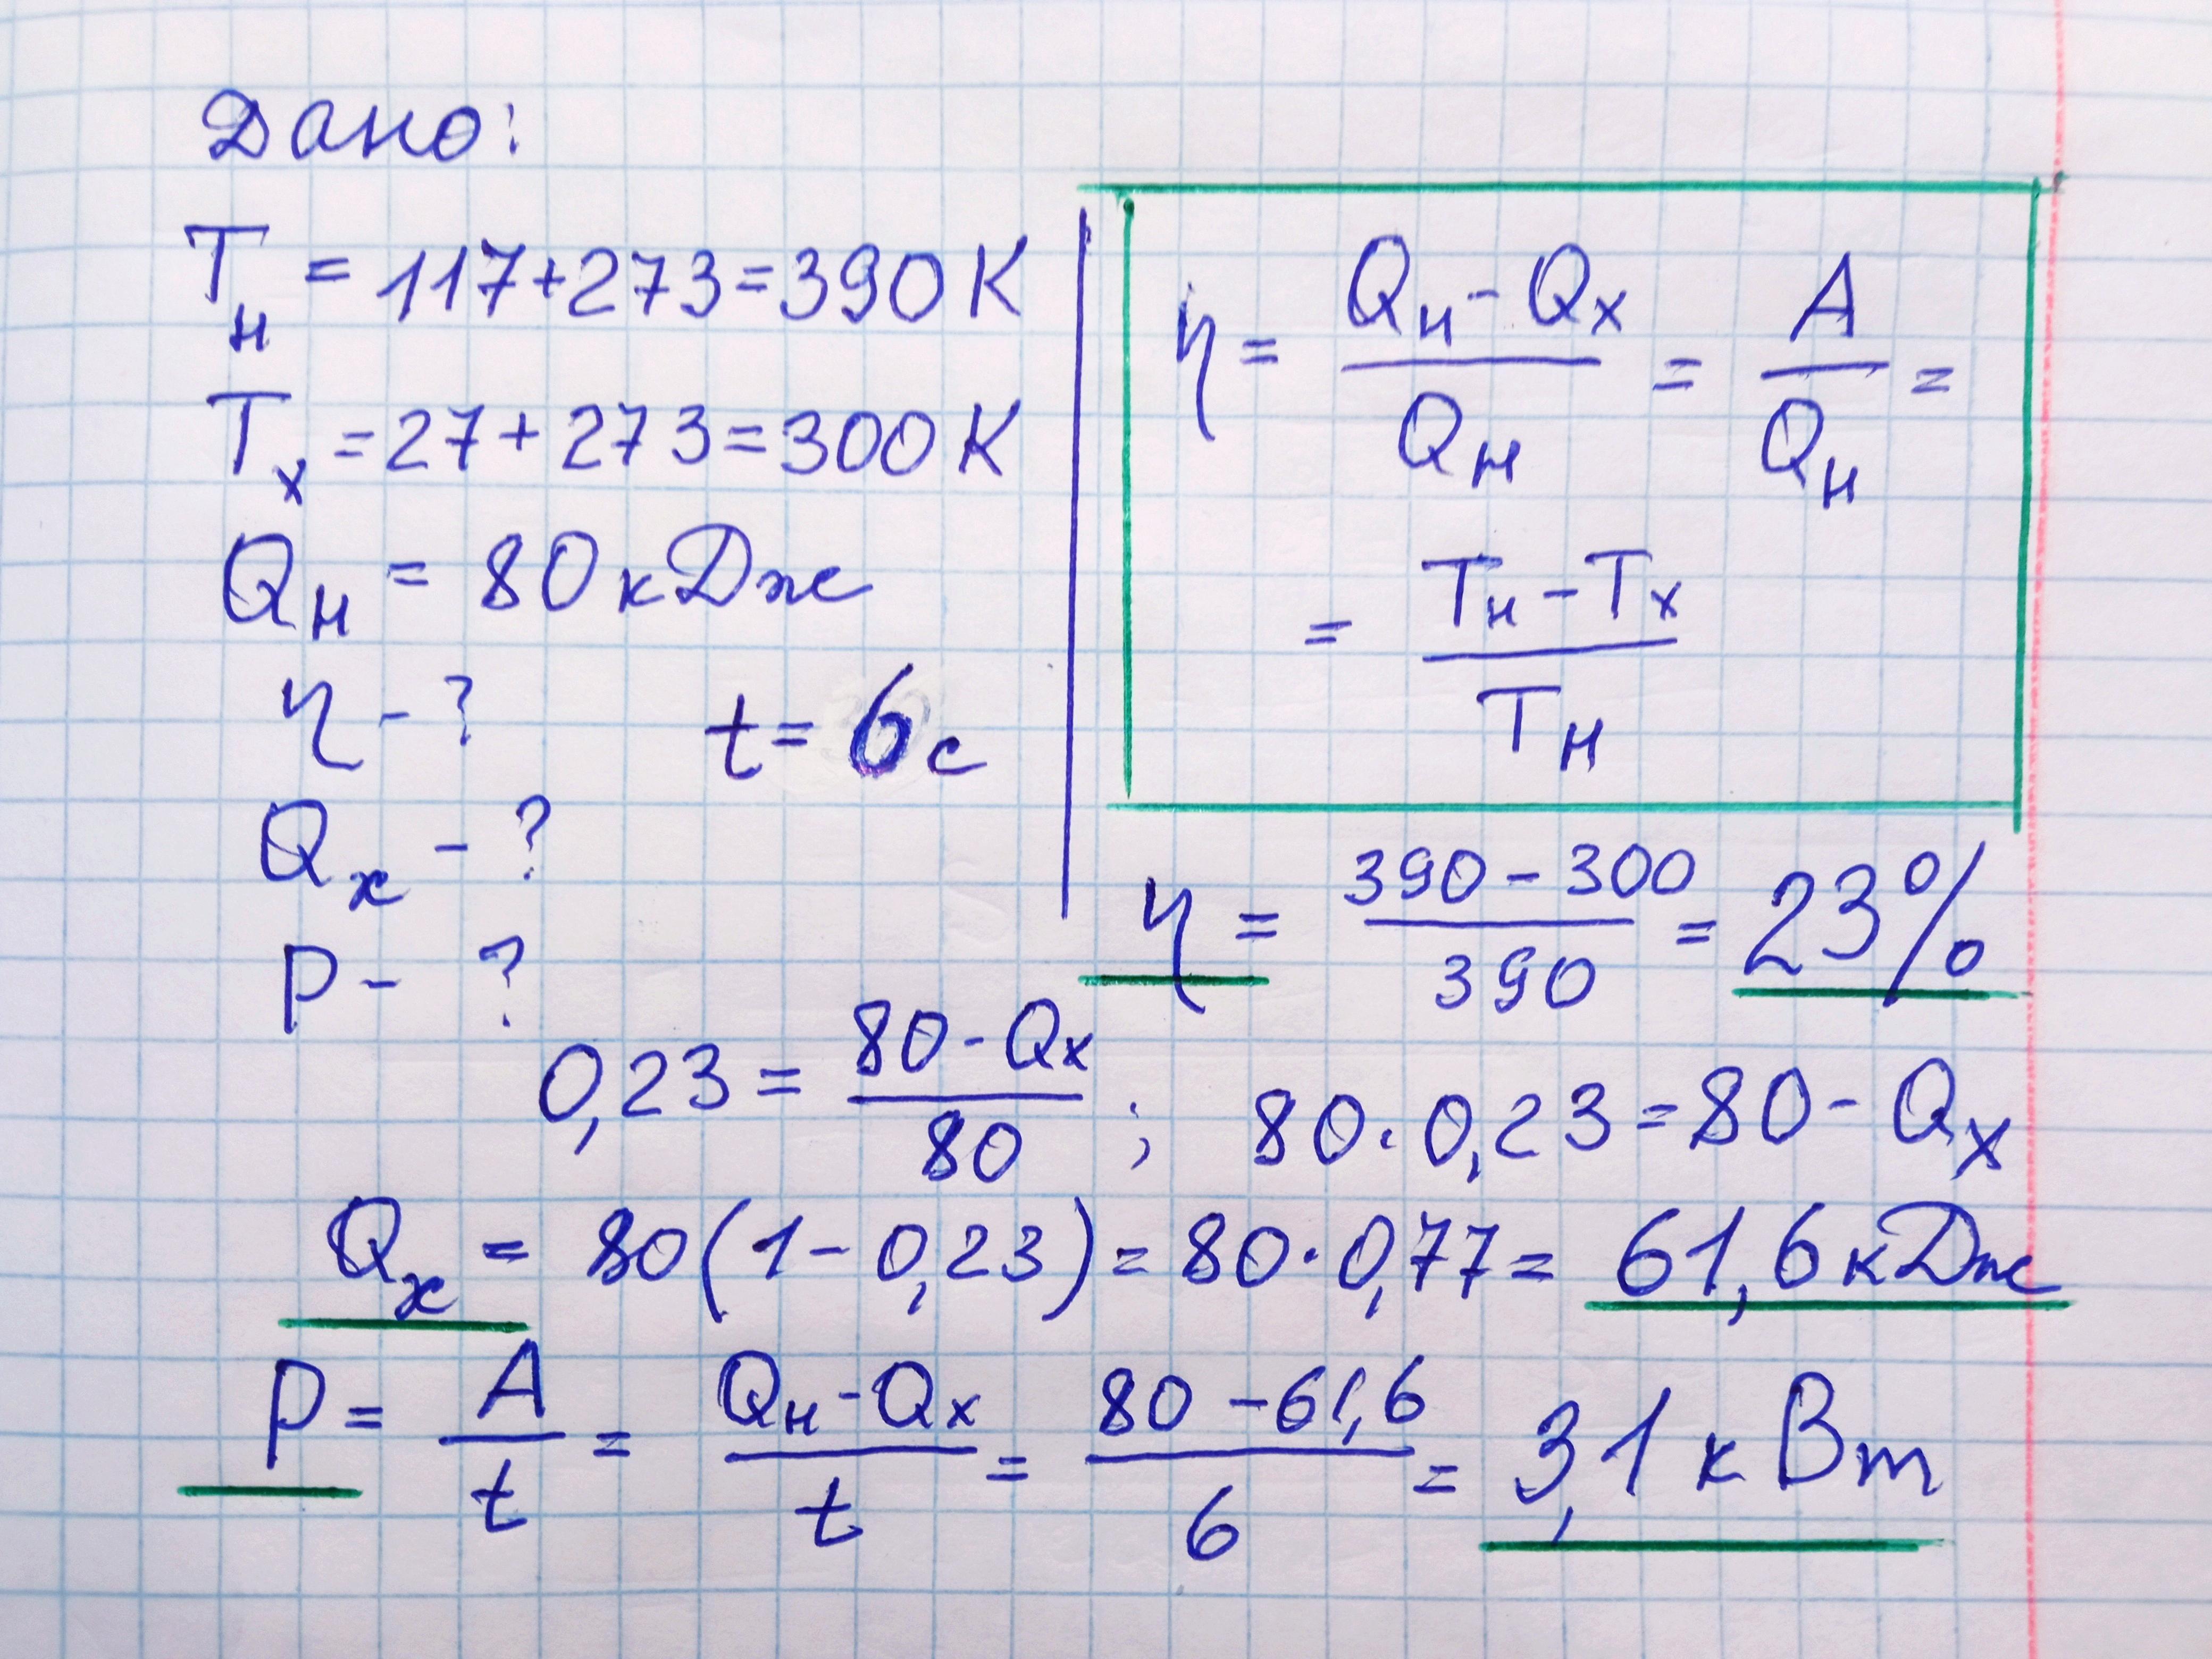 Дано:
Tн = 117+273=390 К
Tх =27+273=300 К
Qн = 80 кДж
η - ? t= 6 с
Qх - ?
P - ?
η = (Qн - Qх)/Qн = A/Qн =
= (Tн - Tх)/Tн
η = (390 - 300)/390 = 23%
0,23 = (80 - Qх)/80 ; 80·0,23=80 - Qх
Qх = 80(1-0,23)=80·0,77= 61,6 кДж
P = A/t = (Qн - Qх)/t = (80 - 61,6)/6 = 3,1 кВт